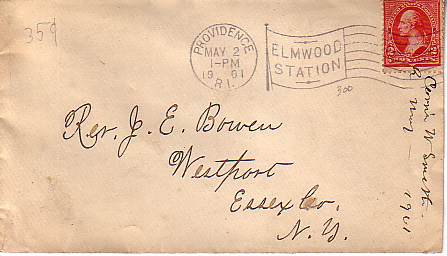 359
PROVIDENCE
MAY 2
1-PM
1901
R.I.
ELMWOOD
STATION
300
Rev. J. E. Bowen
Westport
Essex Co.
N. Y.
W Smith
1901